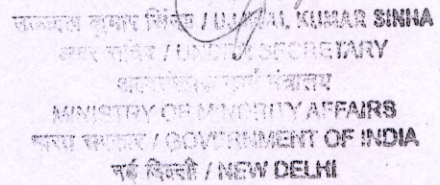 उज्जवल कुमार सिन्हा / UJJAWAL KUMAR SINHA
अवर सचिव / UNDER SECRETARY
अल्पसंख्यक कार्य मंत्रालय
MINISTRY OF MINORITY AFFAIRS
भारत सरकार / GOVERNMENT OF INDIA
नई दिल्ली / NEW DELHI